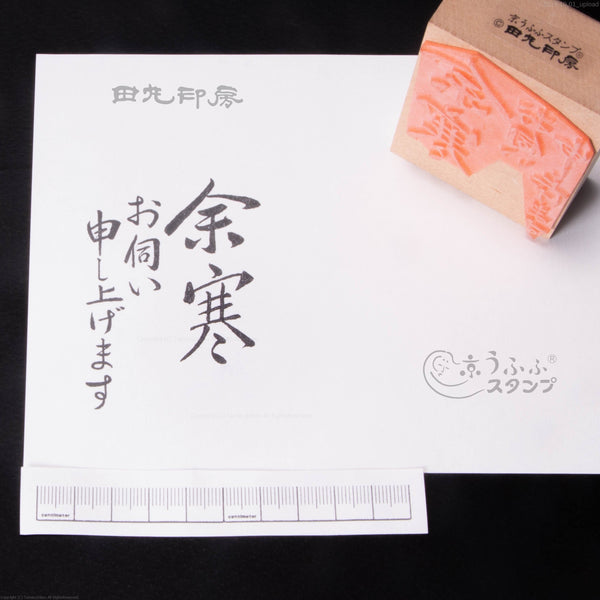 京うふふスタンプ®
©田丸印房
田丸印房
余寒
お伺い
申し上げます
京うふふ®
スタンプ
centimeter
centimeter